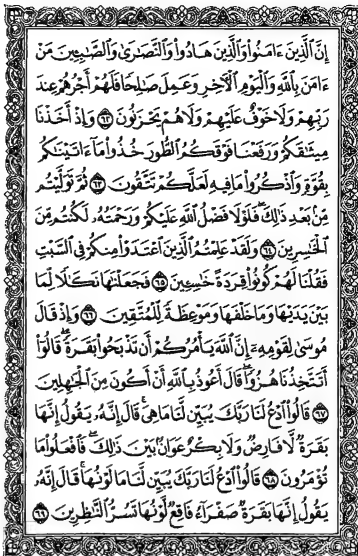 إِنَّ الَّذِينَ ءَامَنُوا۟ وَالَّذِينَ هَادُوا۟ وَالنَّصَٰرَىٰ وَالصَّٰبِـِٔينَ مَنْ
ءَامَنَ بِاللَّهِ وَالْيَوْمِ الْءَاخِرِ وَعَمِلَ صَٰلِحًا فَلَهُمْ أَجْرُهُمْ عِندَ
رَبِّهِمْ وَلَا خَوْفٌ عَلَيْهِمْ وَلَا هُمْ يَحْزَنُونَ ٦٢ وَإِذْ أَخَذْنَا
مِيثَٰقَكُمْ وَرَفَعْنَا فَوْقَكُمُ الطُّورَ خُذُوا۟ مَآ ءَاتَيْنَٰكُم
بِقُوَّةٍ وَاذْكُرُوا۟ مَا فِيهِ لَعَلَّكُمْ تَتَّقُونَ ٦٣ ثُمَّ تَوَلَّيْتُم
مِّنۢ بَعْدِ ذَٰلِكَ ۖ فَلَوْلَا فَضْلُ اللَّهِ عَلَيْكُمْ وَرَحْمَتُهُۥ لَكُنتُم مِّنَ
الْخَٰسِرِينَ ٦٤ وَلَقَدْ عَلِمْتُمُ الَّذِينَ اعْتَدَوْا۟ مِنكُمْ فِى السَّبْتِ
فَقُلْنَا لَهُمْ كُونُوا۟ قِرَدَةً خَٰسِـِٔينَ ٦٥ فَجَعَلْنَٰهَا نَكَٰلًا لِّمَا
بَيْنَ يَدَيْهَا وَمَا خَلْفَهَا وَمَوْعِظَةً لِّلْمُتَّقِينَ ٦٦ وَإِذْ قَالَ
مُوسَىٰ لِقَوْمِهِۦٓ إِنَّ اللَّهَ يَأْمُرُكُمْ أَن تَذْبَحُوا۟ بَقَرَةً ۖ قَالُوٓا۟
أَتَتَّخِذُنَا هُزُوًا ۖ قَالَ أَعُوذُ بِاللَّهِ أَنْ أَكُونَ مِنَ الْجَٰهِلِينَ
٦٧ قَالُوا۟ ادْعُ لَنَا رَبَّكَ يُبَيِّن لَّنَا مَا هِىَ ۚ قَالَ إِنَّهُۥ يَقُولُ إِنَّهَا
بَقَرَةٌ لَّا فَارِضٌ وَلَا بِكْرٌ عَوَانٌۢ بَيْنَ ذَٰلِكَ ۖ فَافْعَلُوا۟ مَا
تُؤْمَرُونَ ٦٨ قَالُوا۟ ادْعُ لَنَا رَبَّكَ يُبَيِّن لَّنَا مَا لَوْنُهَا ۚ قَالَ إِنَّهُۥ
يَقُولُ إِنَّهَا بَقَرَةٌ صَفْرَآءُ فَاقِعٌ لَّوْنُهَا تَسُرُّ النَّٰظِرِينَ ٦٩